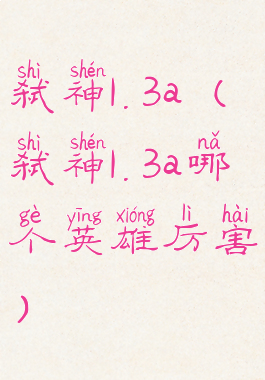 shì shén
弑神1.3a(
shì shén nǎ
弑神1.3a哪
gè yīng xióng lì hài
个英雄厉害
)